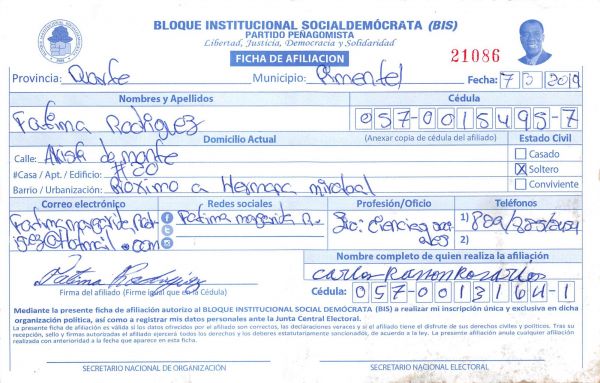 BLOQUE INSTITUCIONAL SOCIALDEMÓCRATA (BIS)
PARTIDO PEÑAGOMISTA
Libertad, Justicia, Democracia y Solidaridad
FICHA DE AFILIACION
21086
Provincia: Duarte Municipio: Pimentel Fecha: 7/3/2019
Nombres y Apellidos Cédula
Fatima Rodriguez 057-0015495-7
Domicilio Actual (Anexar copia de cédula del afiliado) Estado Civil
Calle: de monte Casado
#Casa / Apt. / Edificio: #60 X Soltero
Barrio / Urbanización: Proximo a Hermana mirabal Conviviente
Correo electrónico Redes sociales Profesión/Oficio Teléfonos
Fatima margarita R. Lic: Ciencias 1)
@Hotmail.com 2)
Nombre completo de quien realiza la afiliación
Fatima Rodriguez Carlos Ramon Rosario
Firma del afiliado (Firme igual que en la Cédula) Cédula: 057-0013164-1
Mediante la presente ficha de afiliación autorizo al BLOQUE INSTITUCIONAL SOCIAL DEMÓCRATA (BIS) a realizar mi inscripción única y exclusiva en dicha
organización política, así como a registrar mis datos personales ante la Junta Central Electoral.
La presente ficha de afiliación es válida si los datos ofrecidos por el afiliado son correctos, las declaraciones veraces y si el afiliado tiene el disfrute de sus derechos civiles y políticos. Tras su
recepción, sello y firmas autorizadas el afiliado ejercerá todos los derechos y los deberes estatutariamente sancionados, de acuerdo a la ley. La presente afiliación anula cualquier afiliación
realizada con anterioridad a la fecha que aparece en esta ficha.
SECRETARIO NACIONAL DE ORGANIZACIÓN SECRETARIO NACIONAL ELECTORAL